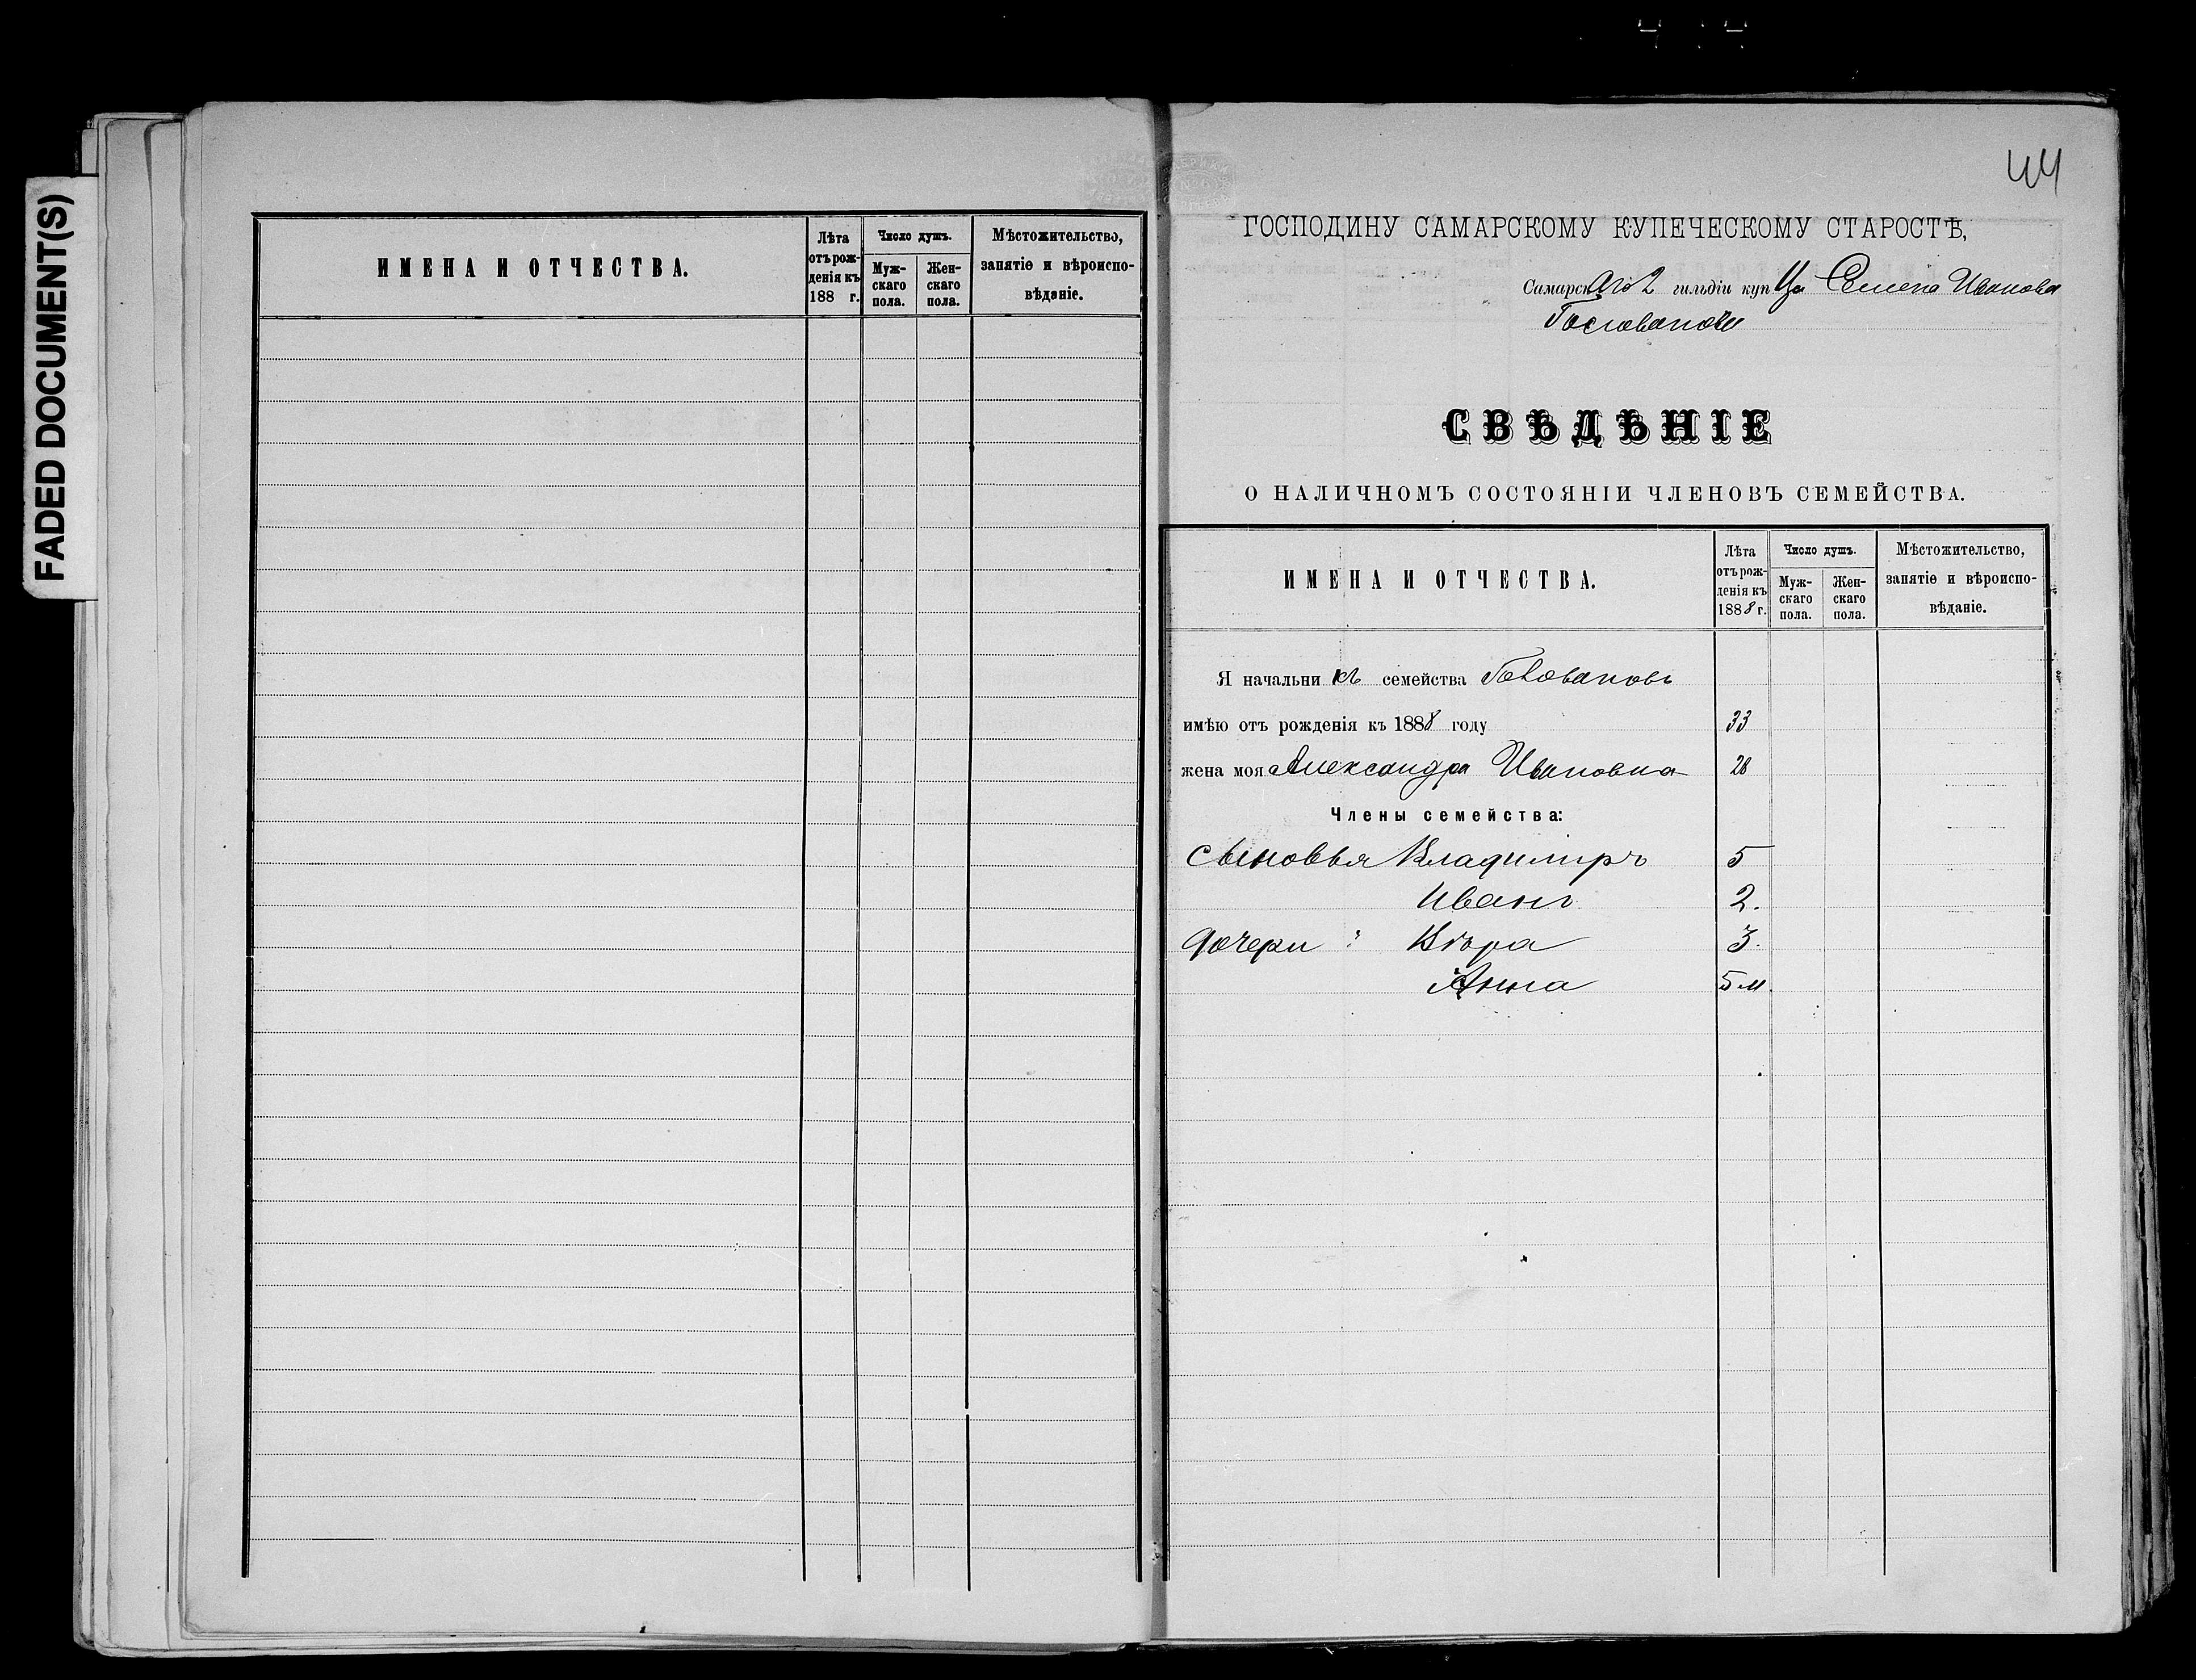 FADED DOCUMENT(S)
ИМЕНА И ОТЧЕСТВА.
Лѣта
отъ рож-
денія къ
188 г.
Число душъ.
Муж-
скаго
пола.
Жен-
скаго
пола.
Мѣстожительство,
занятіе и вѣроиспо-
вѣданіе.
44
ГОСПОДИНУ САМАРСКОМУ КУПЕЧЕСКОМУ СТАРОСТѢ,
Самарскаго 2 гильдіи купца Семена Иванова
СВѢДѢНІЕ
О НАЛИЧНОМЪ СОСТОЯНІИ ЧЛЕНОВЪ СЕМЕЙСТВА.
ИМЕНА И ОТЧЕСТВА.
Лѣта
отъ рож-
денія къ
1888 г.
Число душъ.
Муж-
скаго
пола.
Жен-
скаго
пола.
Мѣстожительство,
занятіе и вѣроиспо-
вѣданіе.
Я начальникъ семейства
имѣю отъ рожденія къ 1888 году 33
жена моя Александра Ивановна 28
Члены семейства:
Сыновья Владимиръ 5
Иванъ 2.
Дочери: Вѣра 3.
Анна 5 м.